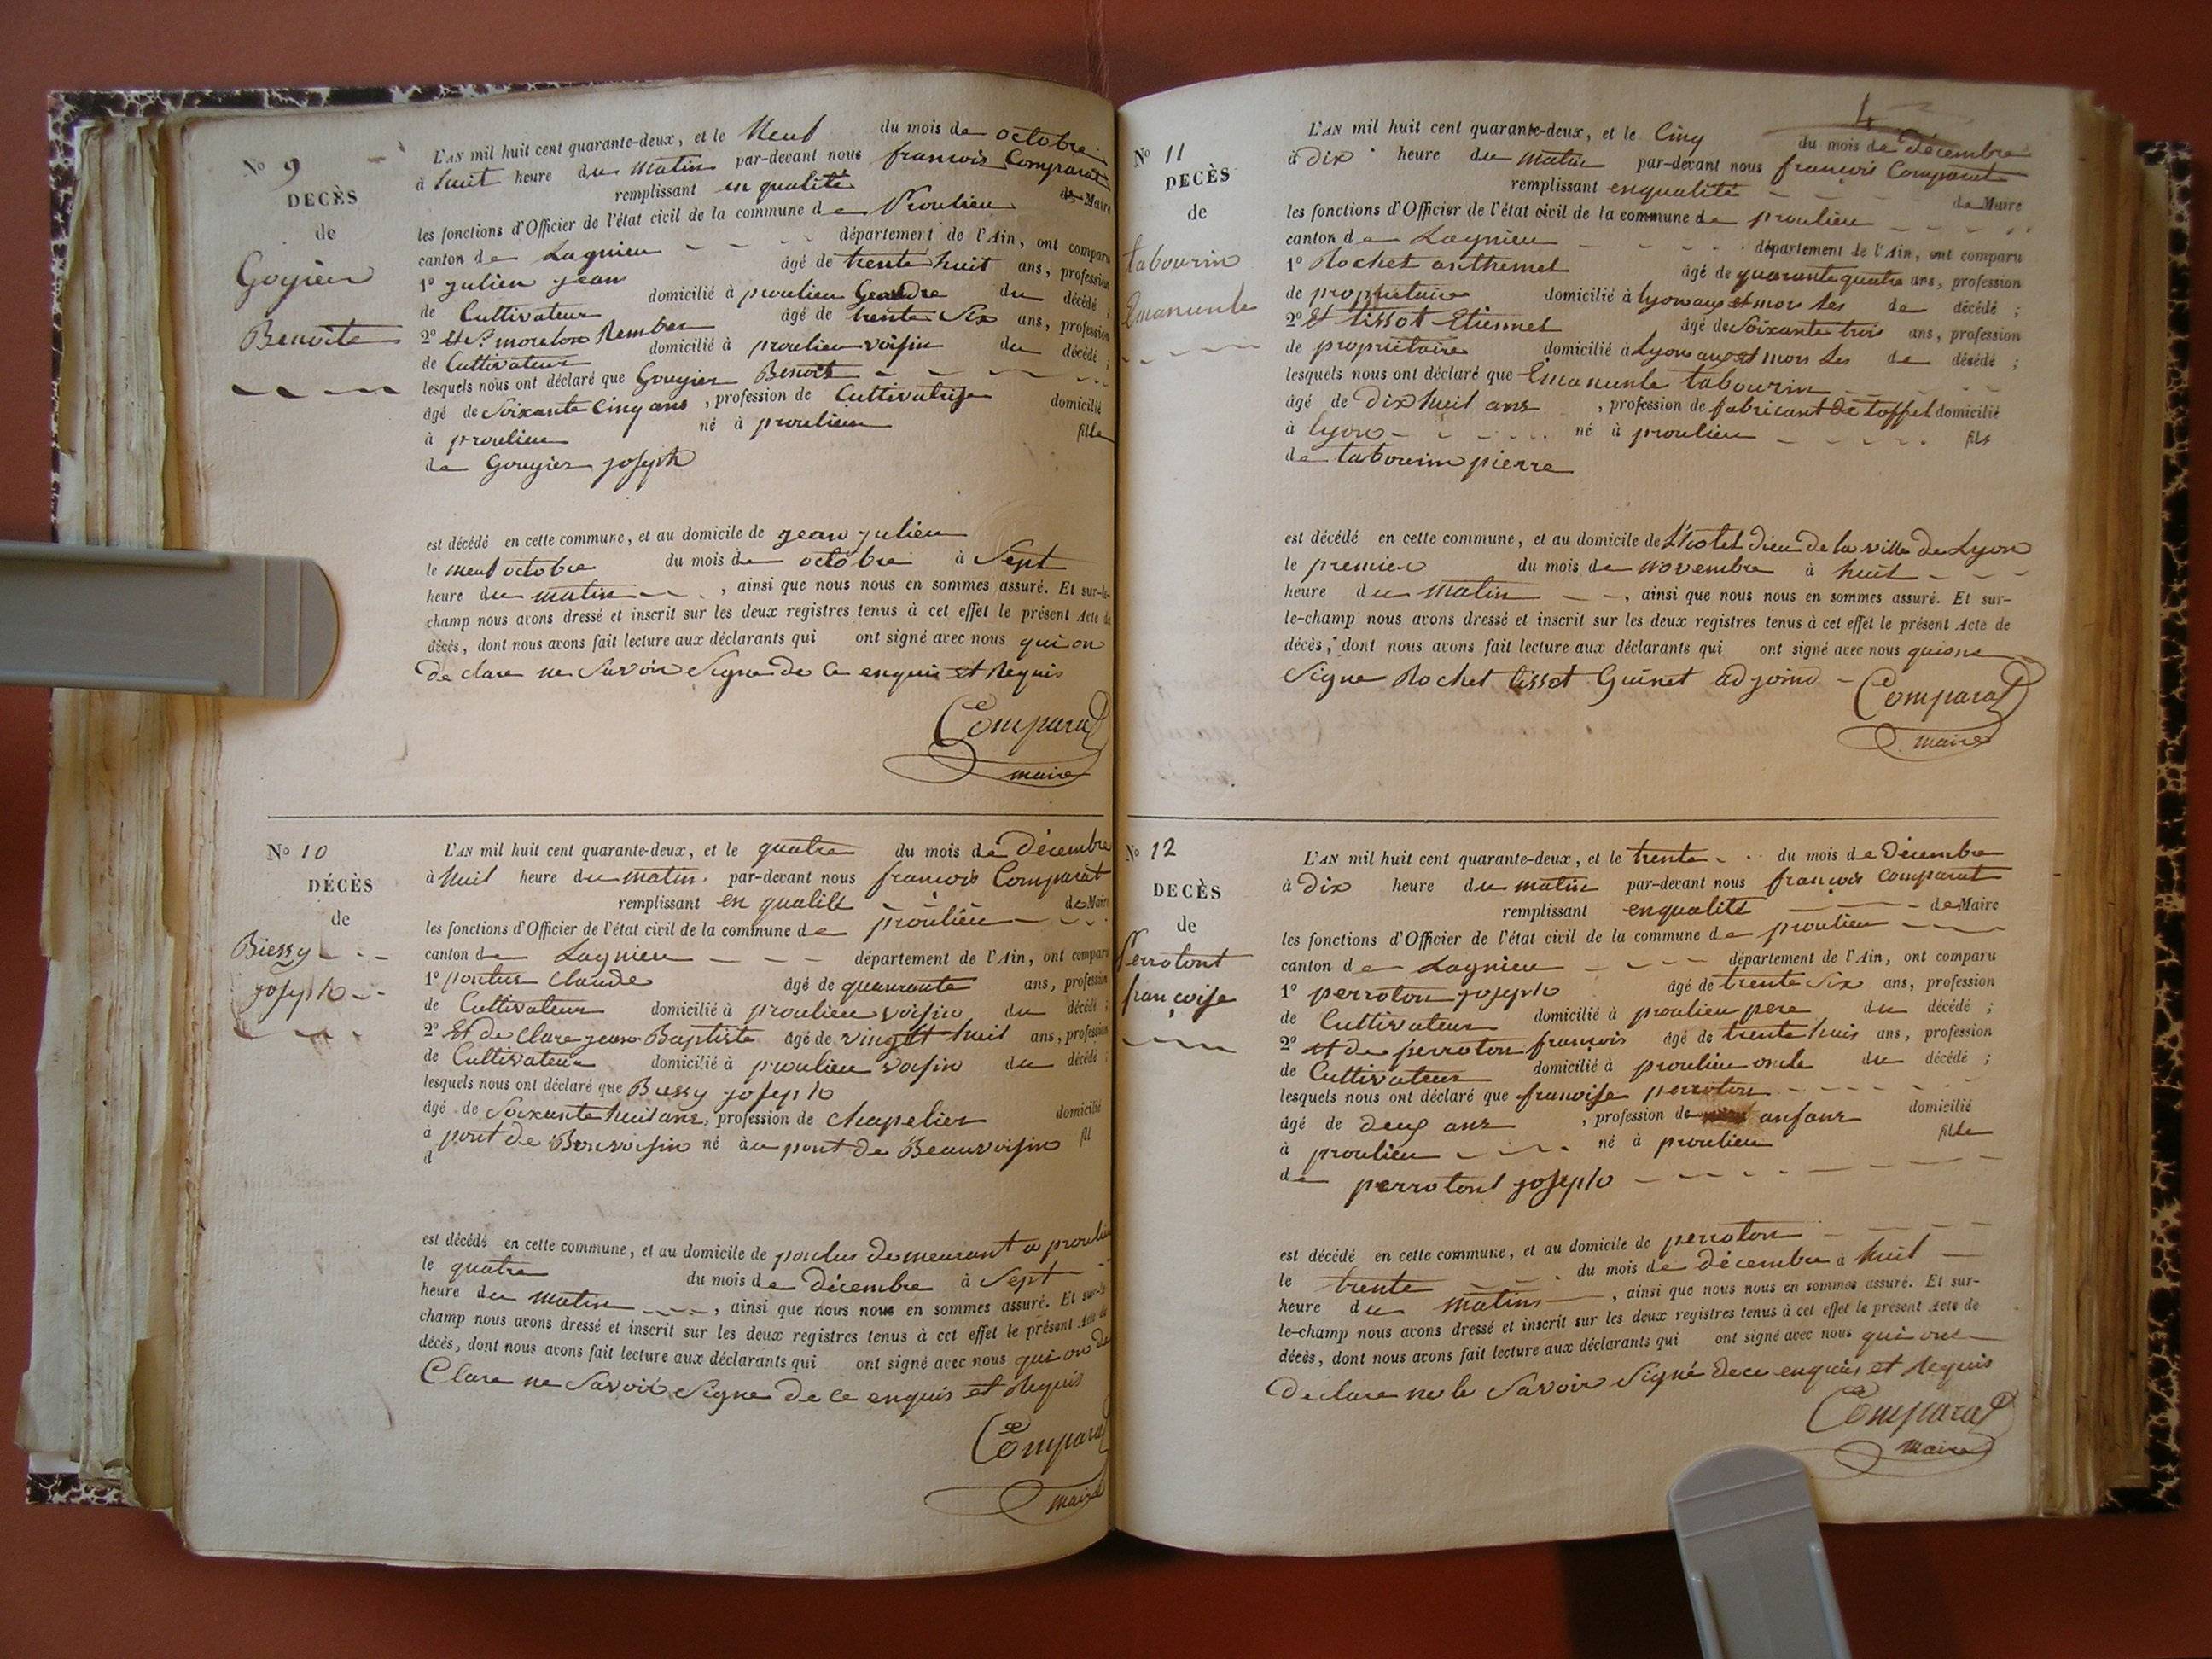 No 9
DECÈS
de
Goyier
Benoite
L'AN mil huit cent quarante-deux, et le Neuf du mois de octobre
à huit heure du matin par-devant nous francois Comparat
remplissant en qualité de Maire
les fonctions d'Officier de l'état civil de la commune de Proulieu
canton de Lagnieu département de l'Ain, ont comparu
1° Julien jean âgé de trente huit ans, profession
de Cultivateur domicilié à proulieu Gendre du décédé ;
2° et Sr morelon Rember âgé de trente Six ans, profession
de Cultivateur domicilié à proulieu voisin du décédé ;
lesquels nous ont déclaré que Gouyier Benoit
âgé de Soixante Cinq ans , profession de Cultivatrise domicilié
à proulieu né à proulieu fille
de Gouyier joseph
est décédé en cette commune, et au domicile de jean julien
le neuf octobre du mois de octobre à Sept
heure du matin , ainsi que nous nous en sommes assuré. Et sur-le-
champ nous avons dressé et inscrit sur les deux registres tenus à cet effet le présent Acte de
décès, dont nous avons fait lecture aux déclarants qui ont signé avec nous qui on
de clare ne Savoir Signe de ce enquis et Requis
Comparat
maire
No 10
DÉCÈS
de
Biessy
joseph
L'AN mil huit cent quarante-deux, et le quatre du mois de Décembre
à huit heure du matin par-devant nous francois Comparat
remplissant en qualité de Maire
les fonctions d'Officier de l'état civil de la commune de proulieu
canton de Lagnieu département de l'Ain, ont comparu
1° poulus Claude âgé de quauronte ans, profession
de Cultivateur domicilié à proulieu voisin du décédé ;
2° et de Clare jean Baptiste âgé de vingtt huit ans, profession
de Cultivateur domicilié à proulieu voisin du décédé ;
lesquels nous ont déclaré que Biessy joseph
âgé de Soixante huit ans, profession de Chapelier domicilié
à pont de Bonvoisin né au pont de Beauvoisin fil
d
est décédé en cette commune, et au domicile de poulus demeurant a proulieu
le quatre du mois de Décembre à Sept
heure du matin , ainsi que nous nous en sommes assuré. Et sur-le-
champ nous avons dressé et inscrit sur les deux registres tenus à cet effet le présent Acte de
décès, dont nous avons fait lecture aux déclarants qui ont signé avec nous qui on de
Clare ne Savoir Signe de ce enquis et Requis
Comparat
maire
4
No 11
DECÈS
de
tabourin
Emanuele
L'AN mil huit cent quarante-deux, et le Cinq du mois de décembre
à dix heure du matin par-devant nous françois Comparat
remplissant enqualité de Maire
les fonctions d'Officier de l'état civil de la commune de proulieu
canton de Lagnieu département de l'Ain, ont comparu
1° Rochet anthemet âgé de quarante quatre ans, profession
de propriétaire domicilié à lyon de décédé ;
2° et tissot Etiennet âgé de Soixante trois ans, profession
de propriétaire domicilié à Lyon de décédé ;
lesquels nous ont déclaré que Emanuele tabourin
âgé de dix huit ans , profession de fabricant de toffet domicilié
à lyon né à proulieu fils
de tabourin pierre
est décédé en cette commune, et au domicile de L'hotel Dieu de la ville de Lyon
le premier du mois de novembre à huit
heure du matin , ainsi que nous nous en sommes assuré. Et sur-
le-champ nous avons dressé et inscrit sur les deux registres tenus à cet effet le présent Acte de
décès, dont nous avons fait lecture aux déclarants qui ont signé avec nous qui ont
Signe Rochet tissot Guinet adjoind
Comparat
maire
No 12
DECÈS
de
Perrotont
françoise
L'AN mil huit cent quarante-deux, et le trente du mois de Décembre
à dix heure du matin par-devant nous françois Comparat
remplissant enqualité de Maire
les fonctions d'Officier de l'état civil de la commune de proulieu
canton de Lagnieu département de l'Ain, ont comparu
1° perroton joseph âgé de trente Six ans, profession
de Cultivateur domicilié à proulieu pere du décédé ;
2° et de perroton francois âgé de trente huis ans, profession
de Cultivateur domicilié à proulieu oncle du décédé ;
lesquels nous ont déclaré que françoise perroton
âgé de deux ans , profession de anfans domicilié
à proulieu né à proulieu fille
de perrotont joseph
est décédé en cette commune, et au domicile de perroton
le trente du mois de décembre à huit
heure du matin , ainsi que nous nous en sommes assuré. Et sur-
le-champ nous avons dressé et inscrit sur les deux registres tenus à cet effet le présent Acte de
décès, dont nous avons fait lecture aux déclarants qui ont signé avec nous qui ont
declare ne le Savoir Signé dece enquis et Requis
Comparat
maire